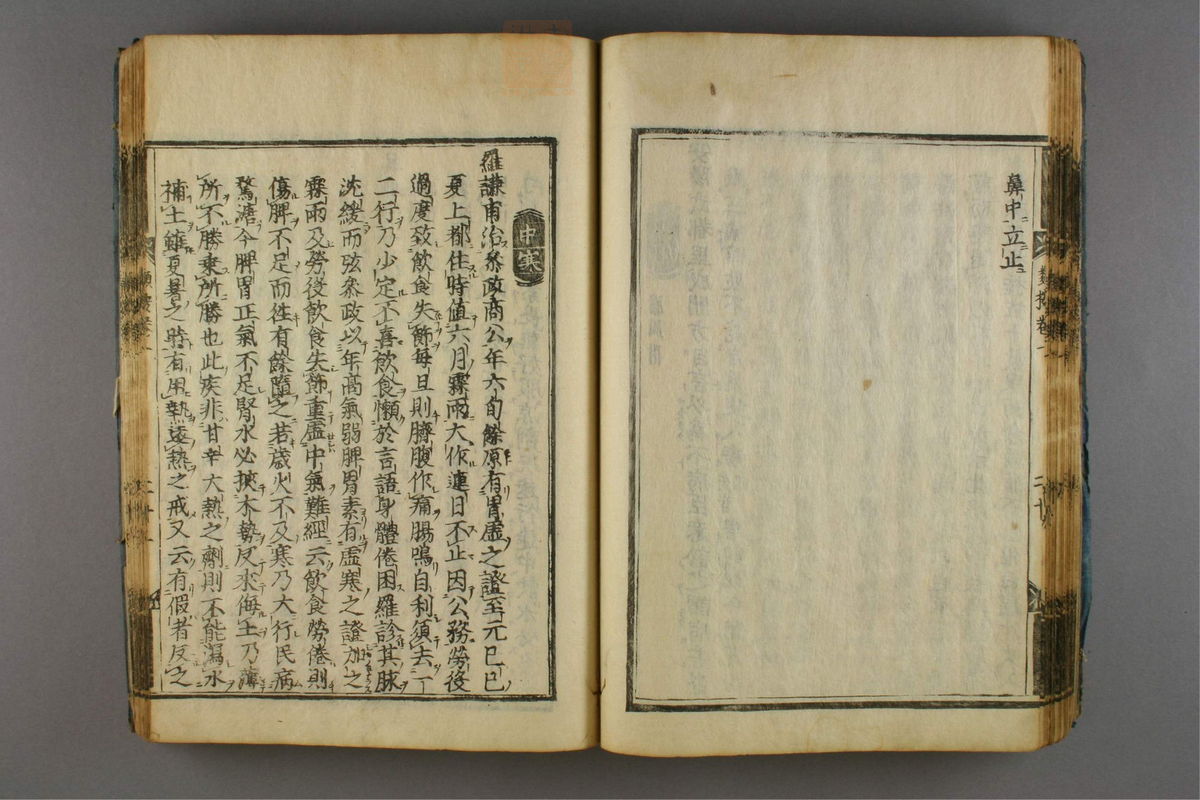 鼻中立止
中寒
羅謙甫治叅政商公年六旬餘原有胃虛之證至元己巳
夏上都住時値六月霖雨大作連日不止因公務勞役
過度致飮食失節每旦則臍腹作痛腸鳴自利須去一
二行乃少定不喜飮食懶於言語身體倦困羅診其脉
沈緩而弦叅政以年高氣弱脾胃素有虛寒之證加之
霖雨及勞役飮食失節重虛中氣難經云飮食勞倦則
傷脾不足而徃有餘隨之若歲火不及寒乃大行民病
鶩溏今脾胃正氣不足腎水必挾木勢反來侮土乃薄
所不勝乘所勝也此疾非甘辛大熱之劑則不能瀉水
補土雖夏暑之時有用熱遠熱之戒又云有假者反之